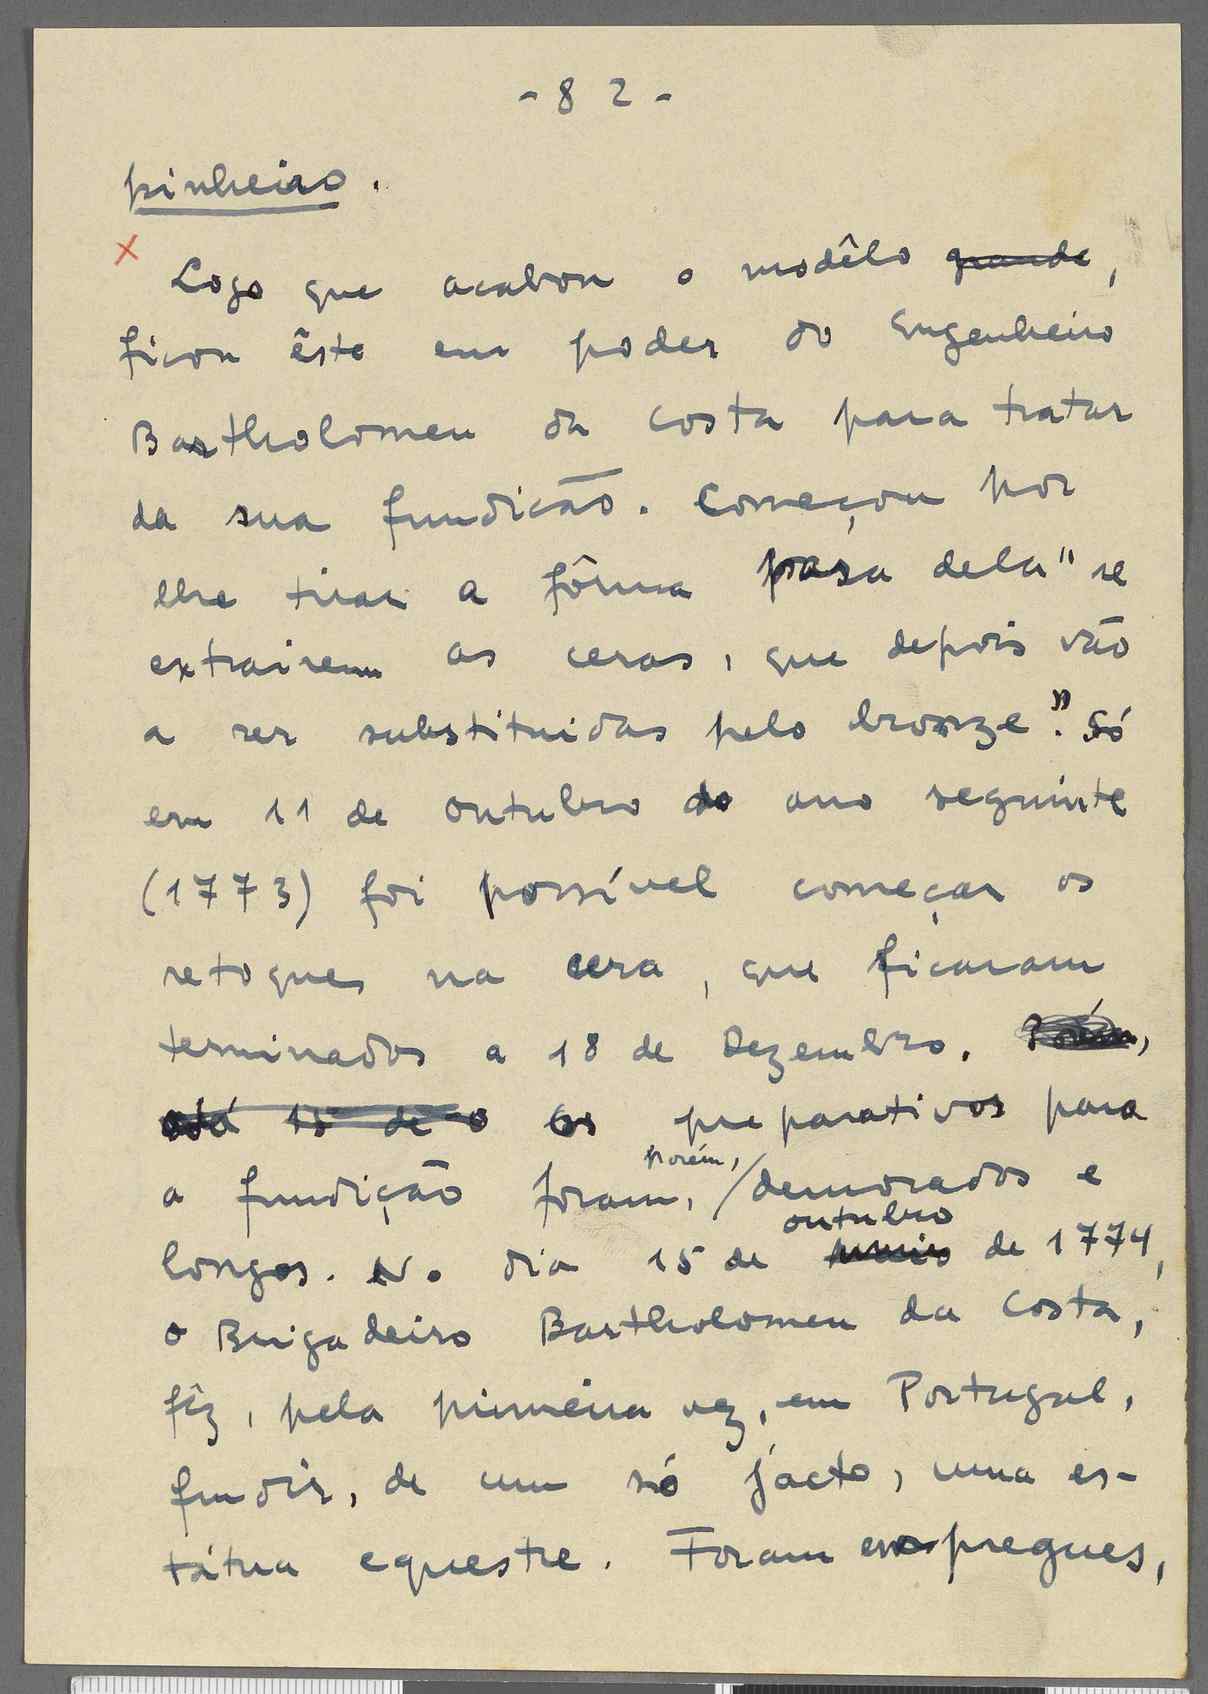 - 8 2 -
pinheiro.
x Logo que acabou o modêlo grande,
ficou êste em poder do Engenheiro
Bartholomeu da Costa para tratar
da sua fundicão. Começou por
lhe tirar a fôrma para dela "se
extrairem as ceras, que depois vão
a ser substituidas pelo bronze". Só
em 11 de outubro do ano seguinte
(1773) foi possível começar os
retoques na cera, que ficaram
terminados a 18 de Dezembro. Porém,
até 15 de o Os preparativos para
a fundição foram, porém, demorados e
longos. No dia 15 de outubro de 1774,
o Brigadeiro Bartholomeu da Costa,
fêz, pela primeira vez, em Portugal,
fundir, de um só jacto, uma es-
tátua equestre. Foram empregues,